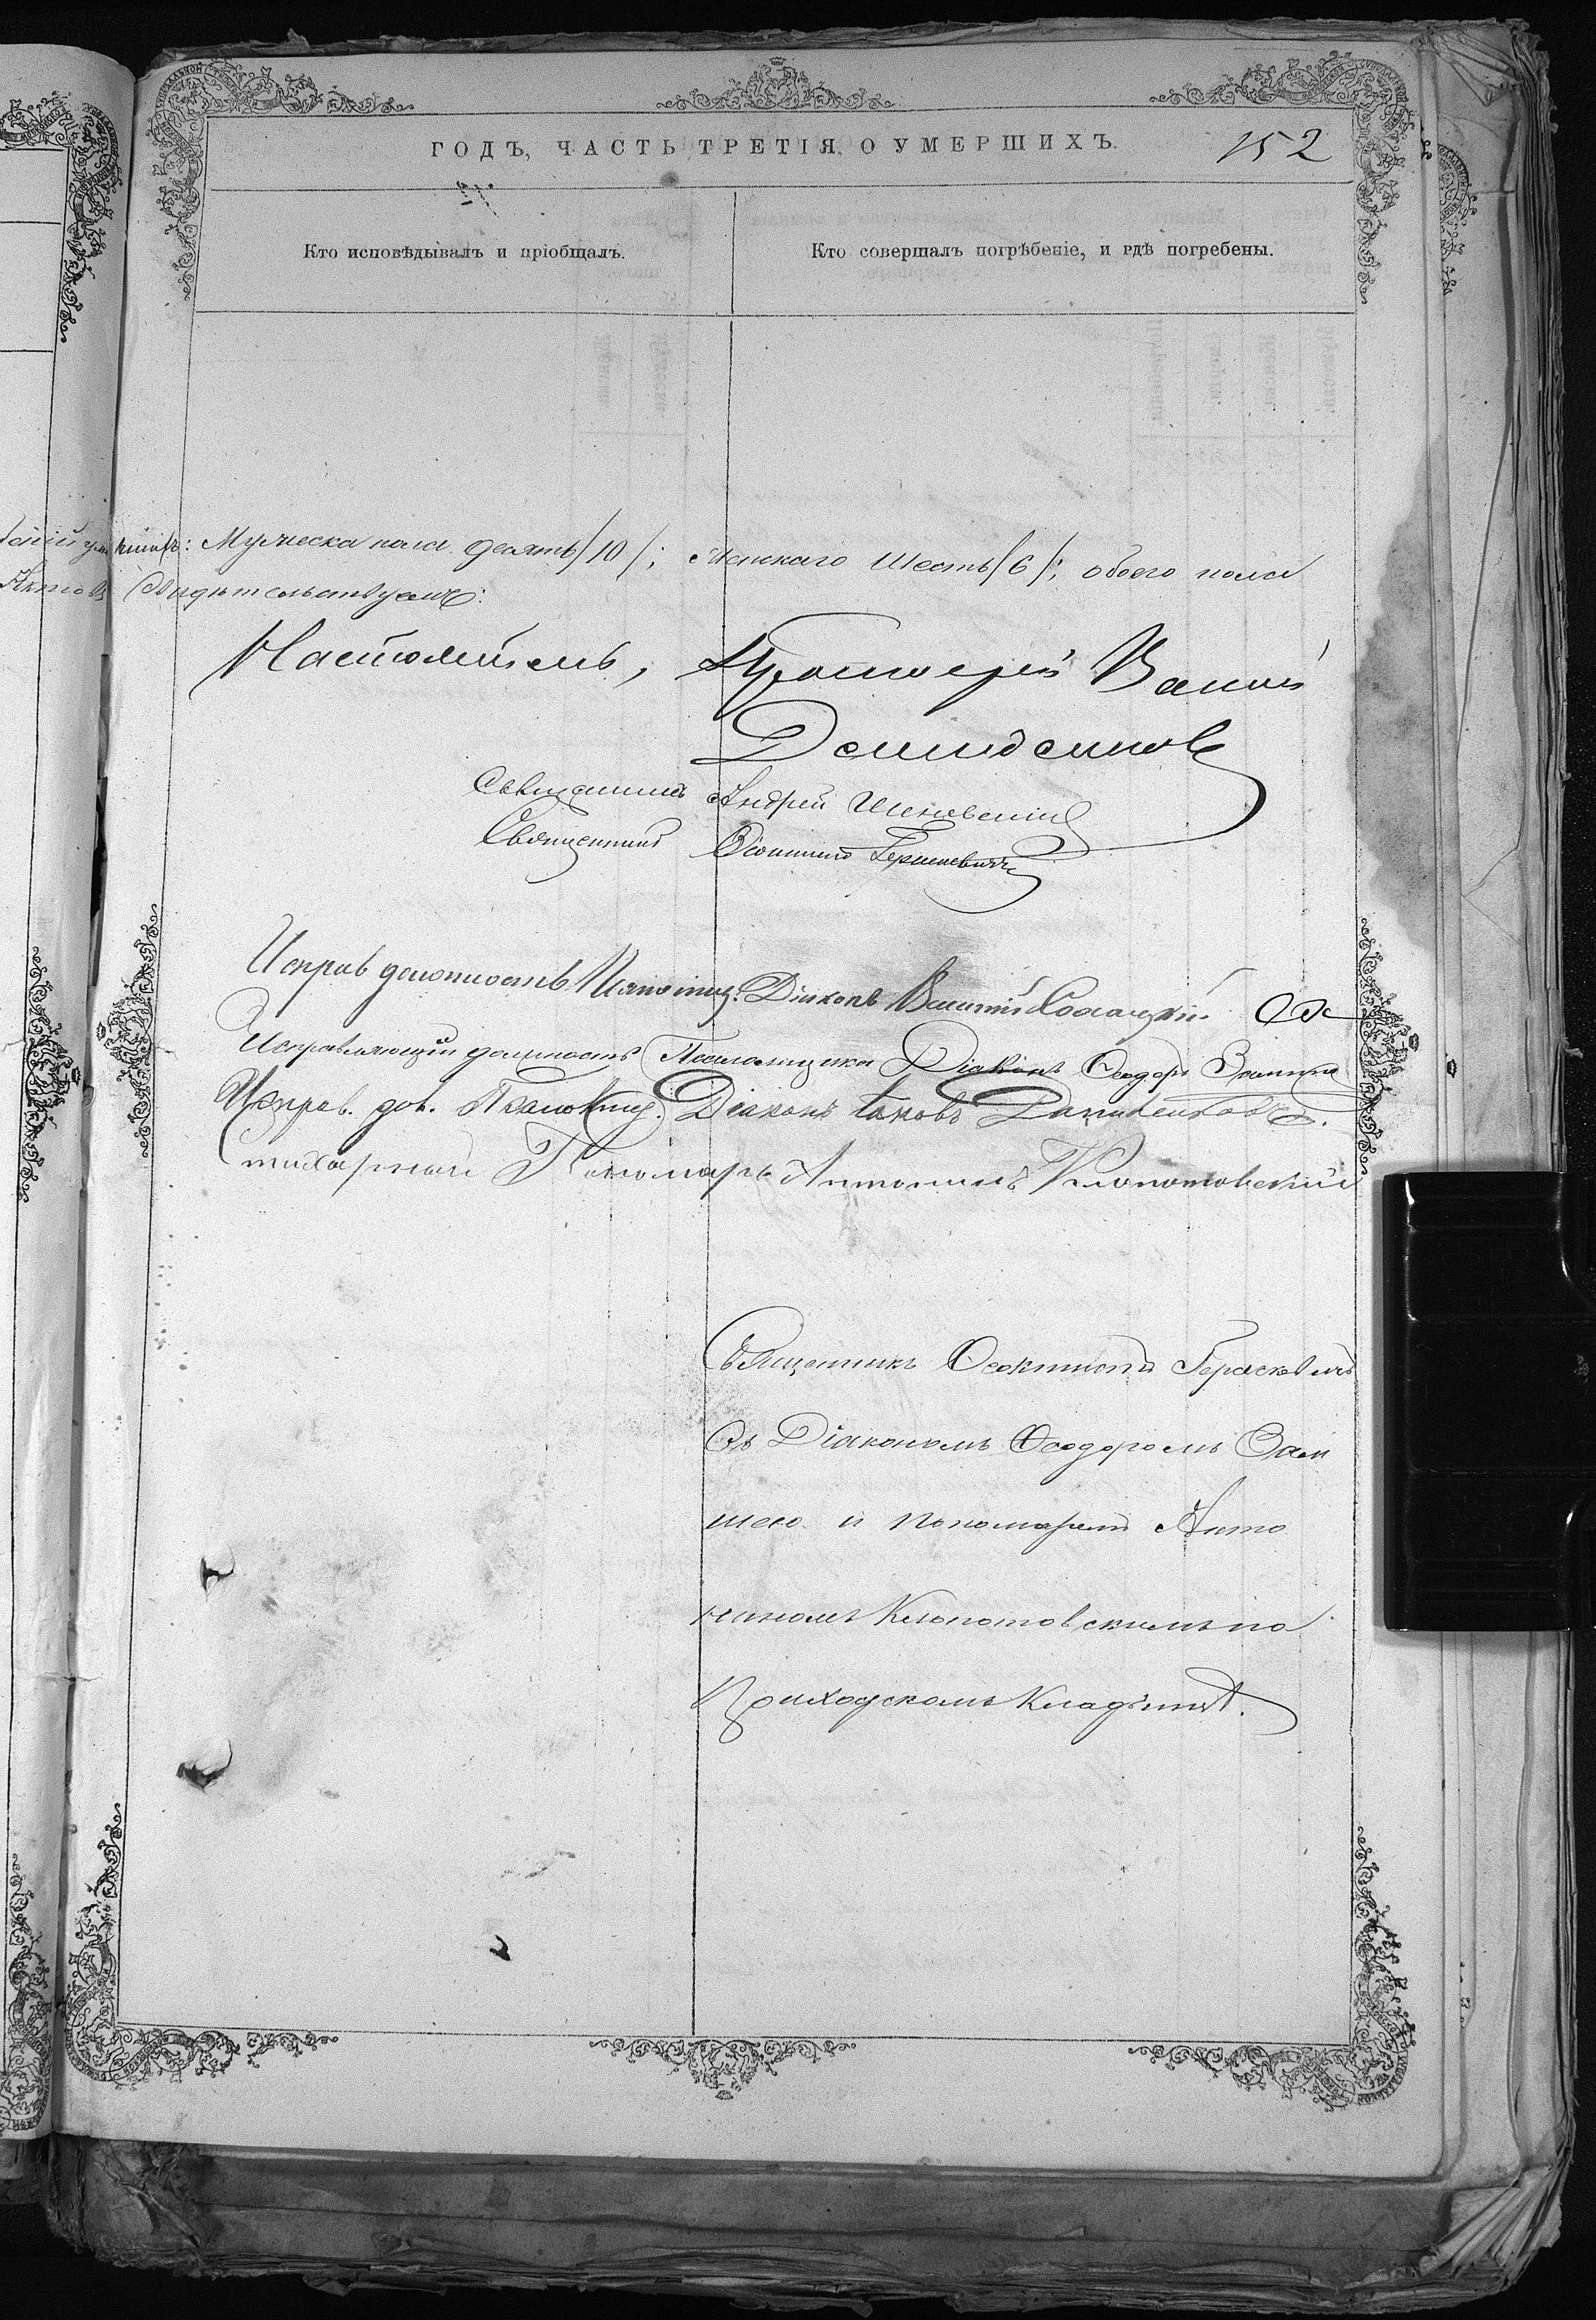 ГОДЪ, ЧАСТЬ ТРЕТІЯ, О УМЕРШИХЪ.
152
Кто исповѣдывалъ и пріобщалъ.
Кто совершалъ погрѣбеніе, и гдѣ погребены.
Мужеска пола десять /10/; женскаго шесть /6/; обоего пола
Актовъ свидѣтельствуемъ:
Настоятель, Протоіерей
Демиденковъ
Священникъ Андрей
Священникъ Ѳеоктистъ Гераскевичъ
Исправ. должность Псаломщ. Діаконъ Василій
Исправляющій должность Псаломщика Діаконъ Ѳеодоръ
Исправ. дол. Псаломщ. Діаконъ Іаковъ
Стихарный Пономарь Антонинъ Клопотовскій
Священникъ Ѳеоктистъ Гераскевичъ
съ Діакономъ Ѳеодоромъ Зам
шею и пономаремъ Анто
ниномъ Клопотовскимъ на
Приходскомъ Кладбищѣ.